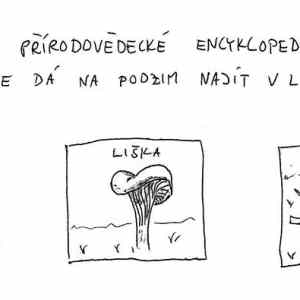 PŘÍRODOVĚDECKÉ ENCYKLOPED
E DÁ NA PODZIM NAJÍT V L
LIŠKA